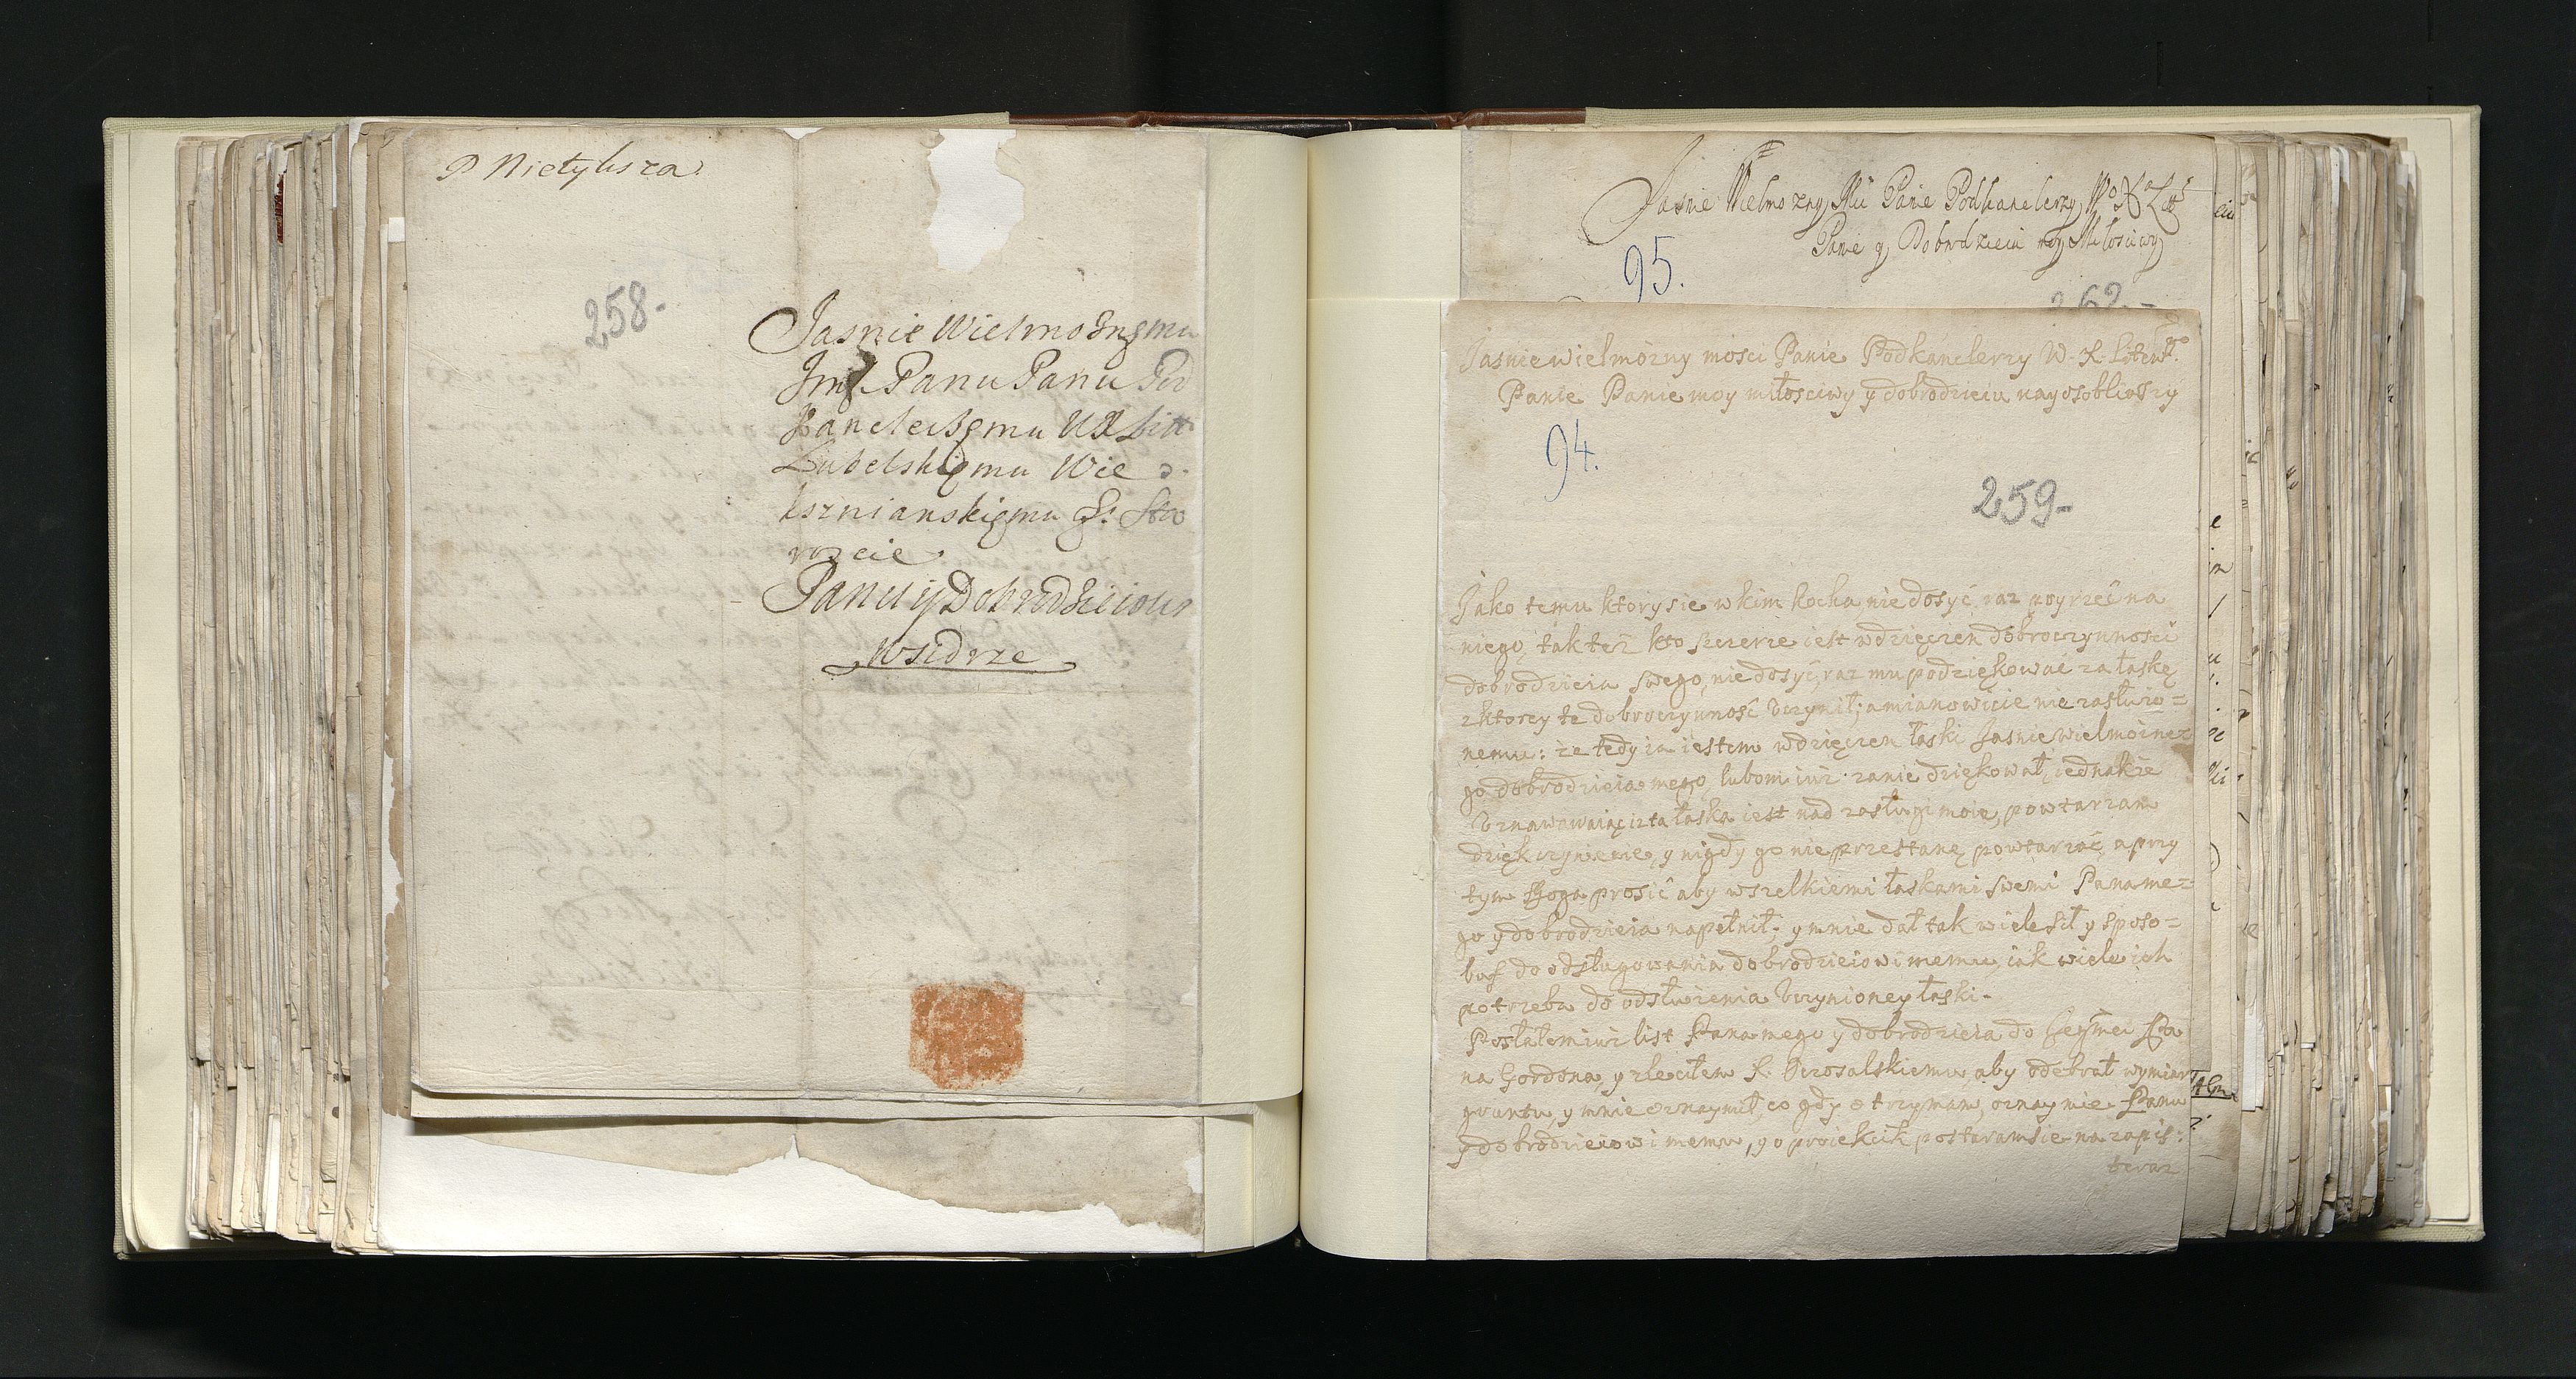 P Nietyksza
258-
Jasnie Wielmożnęmu
Jmś Panu Panu Pod
Kancleiżęmu WX Litt
Lubelskięmu Wie
kszniańskięmu &: Sta
roscie
Panu ÿ Dobrodżieiowi
wsidrze
Jasnie Wielmozny Mći Panie Podkanclerzy Wo Xa Litt
Panie y Dobrodzieiu moy Miłosciwy
95.
262.-
Jasnie wielmozny mosci Panie Podkanclerzy W. X. Litewgo
Panie Panie moy miłosciwy y dobrodzieiu nayosobliwszy
94.
259-
Jako temu ktory sie w kim kocha, nie dosyć raz poyrzeć na
niego, tak też kto szczerze iest wdzięczen dobroczynności
dobrodzieia swego, nie dosyć, raz mu podziękować za łaskę
z ktorey te dobroczynność uczynił; a mianowicie nie zasłużo=
nemu: że tedy ia iestem wdzięczen łaski Jasnie wielmożne=
go dobrodzieia mego, lubom iuż za nię dziękował, iednakże
uznawaiąc iż ta łaska iest nad zasługi moie, powtarzam
dziękczynienie, y nigdy go nie przestanę powtarzać, a przy
tym Boga prosić aby wszelkiemi łaskami swemi Pana me=
go y dobrodzieia napełnił; y mnie dał tak wiele sił y sposo=
bos do odsługowania dobrodzieiowi memu, iak wiele ich
potrzeba do odsłużenia uczynioney łaski.
Posłałem iuż list Pana mego y dobrodzieia do Jegmći Pa
na Gordona, y zleciłem X. Uczosalskiemu, aby odebrał wymiar
gruntu, y mnie oznaymił, co gdy otrzymam, oznaymie Panu
y dobrodzieiowi memu, y o proiekcik postaram sie na zapis:
teraz